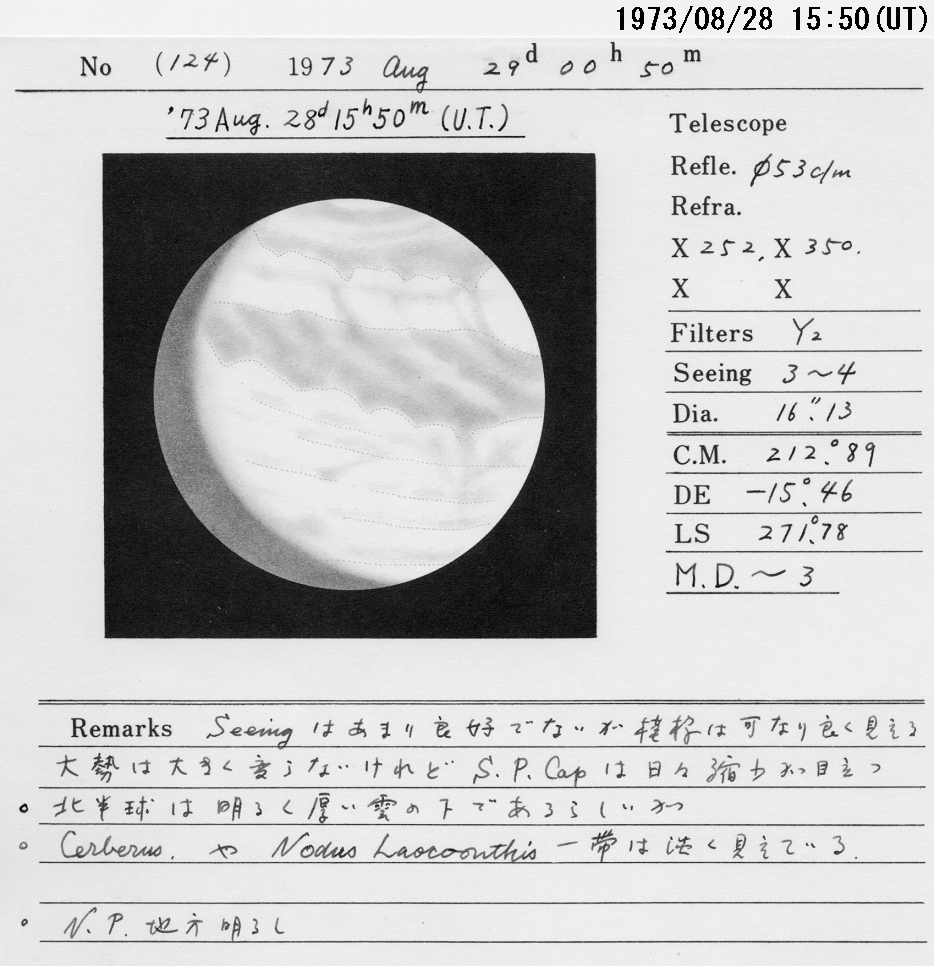 1973/08/28 15:50(UT)
No (124) 1973 Aug 29d 00h 50m
'73 Aug. 28d 15h 50m (U.T.)
Telescope
Refle. φ53c/m
Refra.
X 252, X 350.
X X
Filters Y2
Seeing 3~4
Dia. 16".13
C.M. 212.°89
DE -15.°46
LS 271.°78
M.D. ~ 3
Remarks Seeing はあまり良好でないが模様は可なり良く見える
大勢は大きく変らないけれど S.P.Cap は日々縮少が目立つ
○ 北半球は明るく厚い雲の下であるらしいが
○ Cerberus. や Nodus Laocoontis 一帯は淡く見えている.
○ N.P. 地方明るし